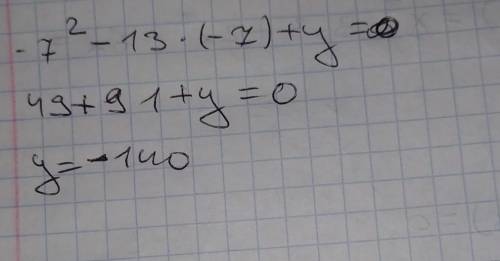 -7² - 13 · (-7) + y = 0
49 + 91 + y = 0
y = -140